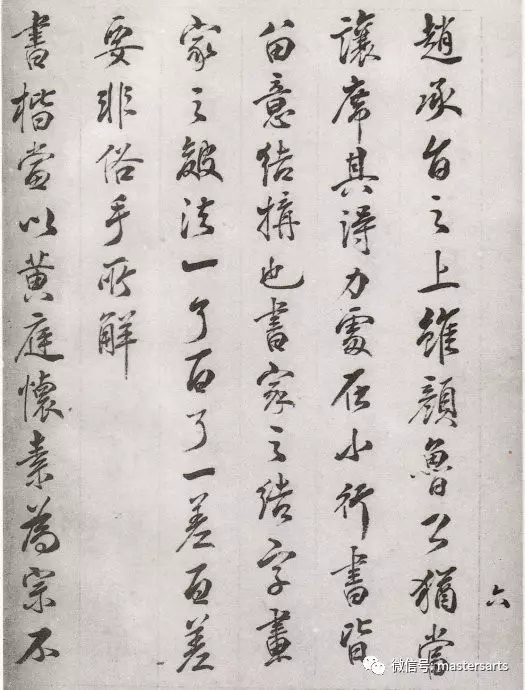 趙承旨之上雖顏魯公猶當
讓席其得力處在小行書皆
留意結搆也書家之結字畫
家之皴法一了百了一差百差
要非俗手所解
書楷當以黃庭懷素為宗不
六
微信号: mastersarts